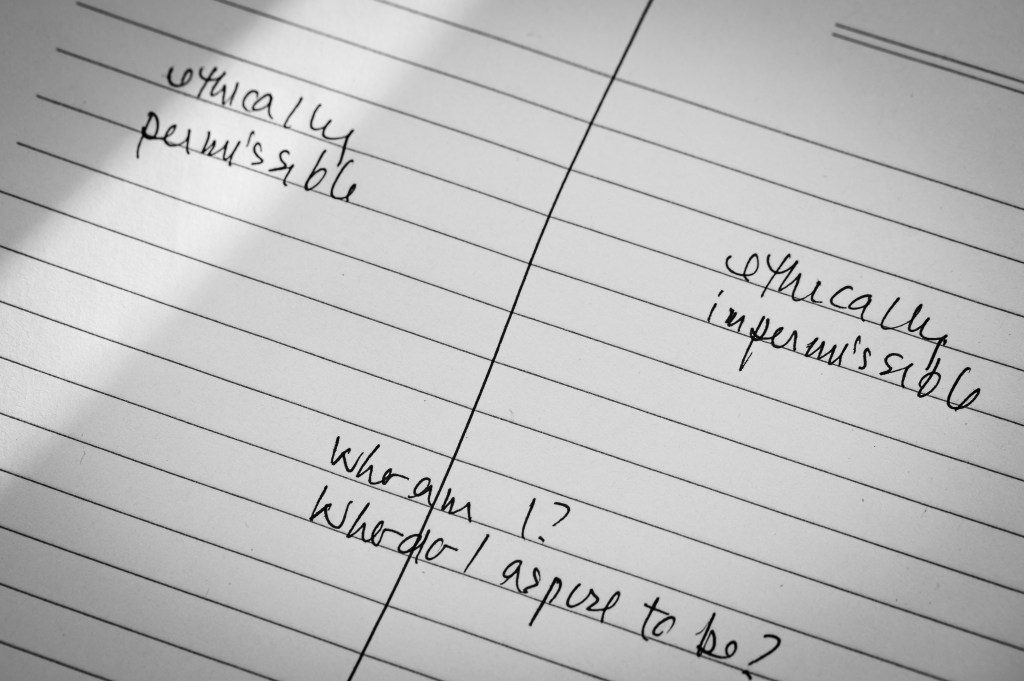 ethically
permissible
ethically
impermissible
Who am I?
Who do I aspire to be?